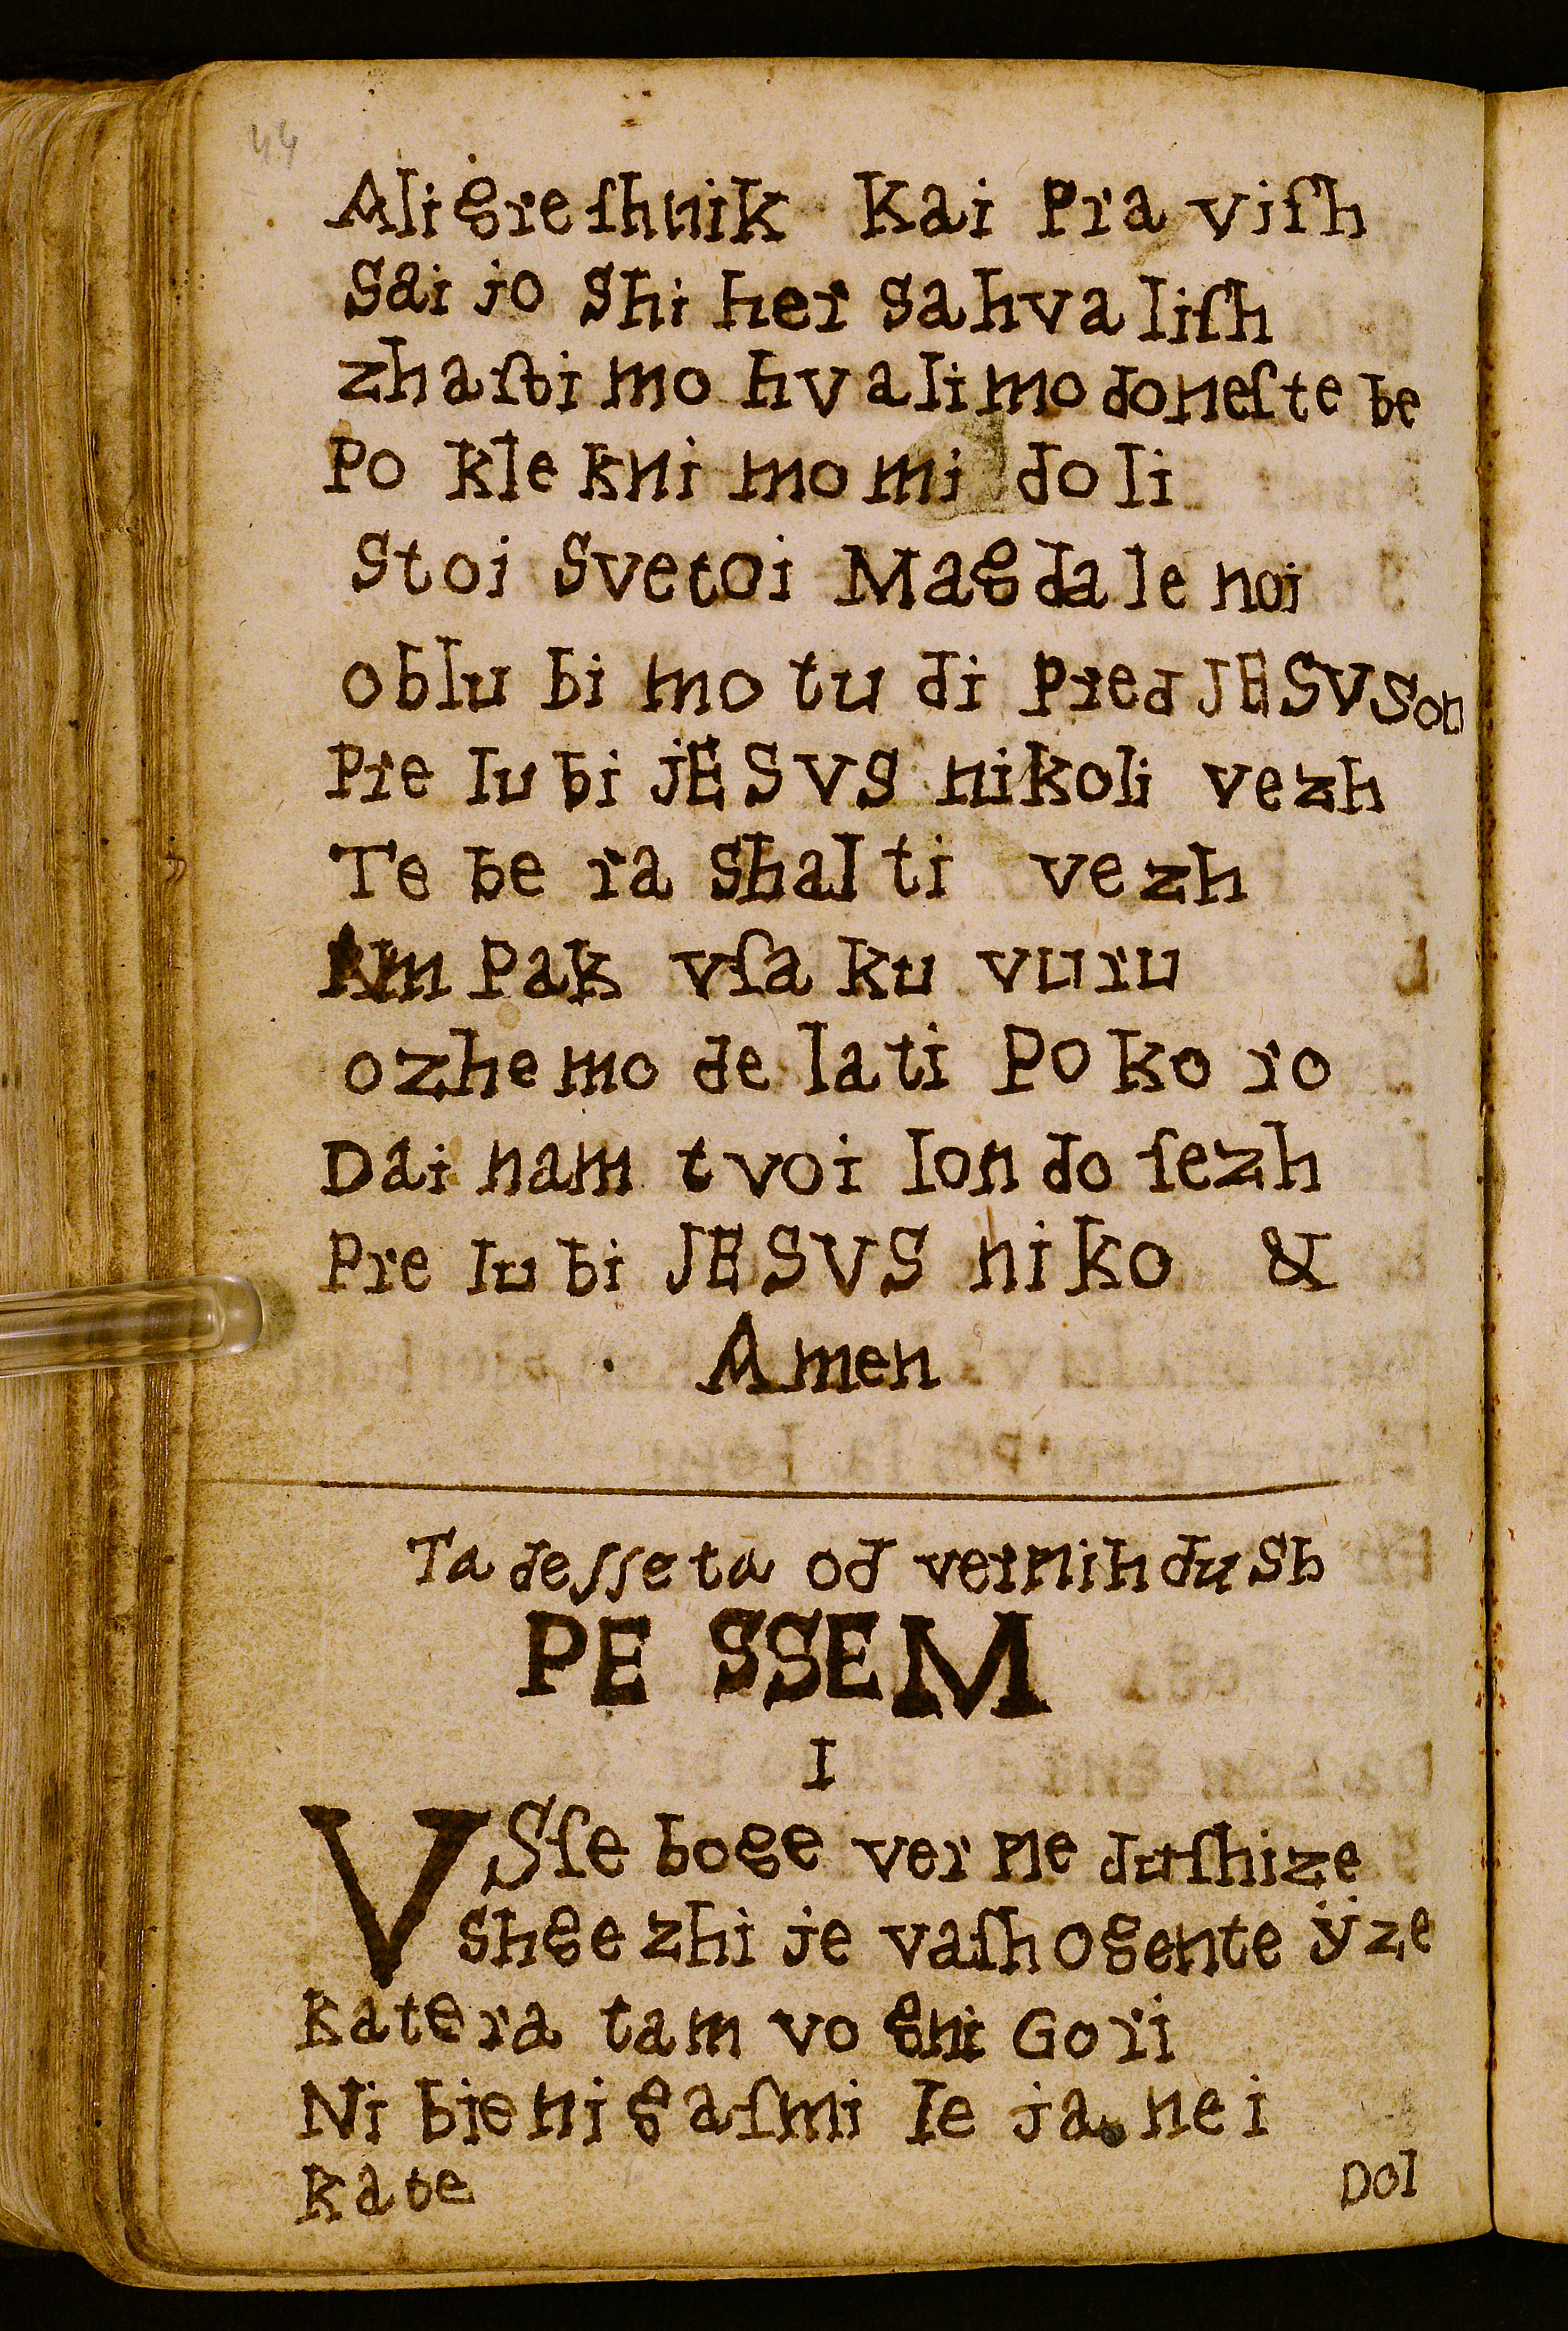 44
Aligreſhnik Kai Pra viſh
Sai jo Shi her Sahva liſh
zhaſti mo hvalimo doneſte be
Po kle kni mo mi doli
Stoi Svetoi Magdale noi
oblu bi mo tu di Pred JESUS on
Pre lu bi jESVS nikoli vezh
Te be ra Shal ti vezh
Am Pak vſa ku vuru
ozhe mo de lati Poko ro
Dai nam tvoi lon do ſezh
Pre lu bi JESVS niko &
Amen
Ta desseta od vernih duSh
PE SSEM
I
VSſe boge ver ne duſhize
shge zhi je vaſh ogente ÿze
katera tam vo gni Gori
Ni bie ni gaſmi le ja nei
kate
Dol